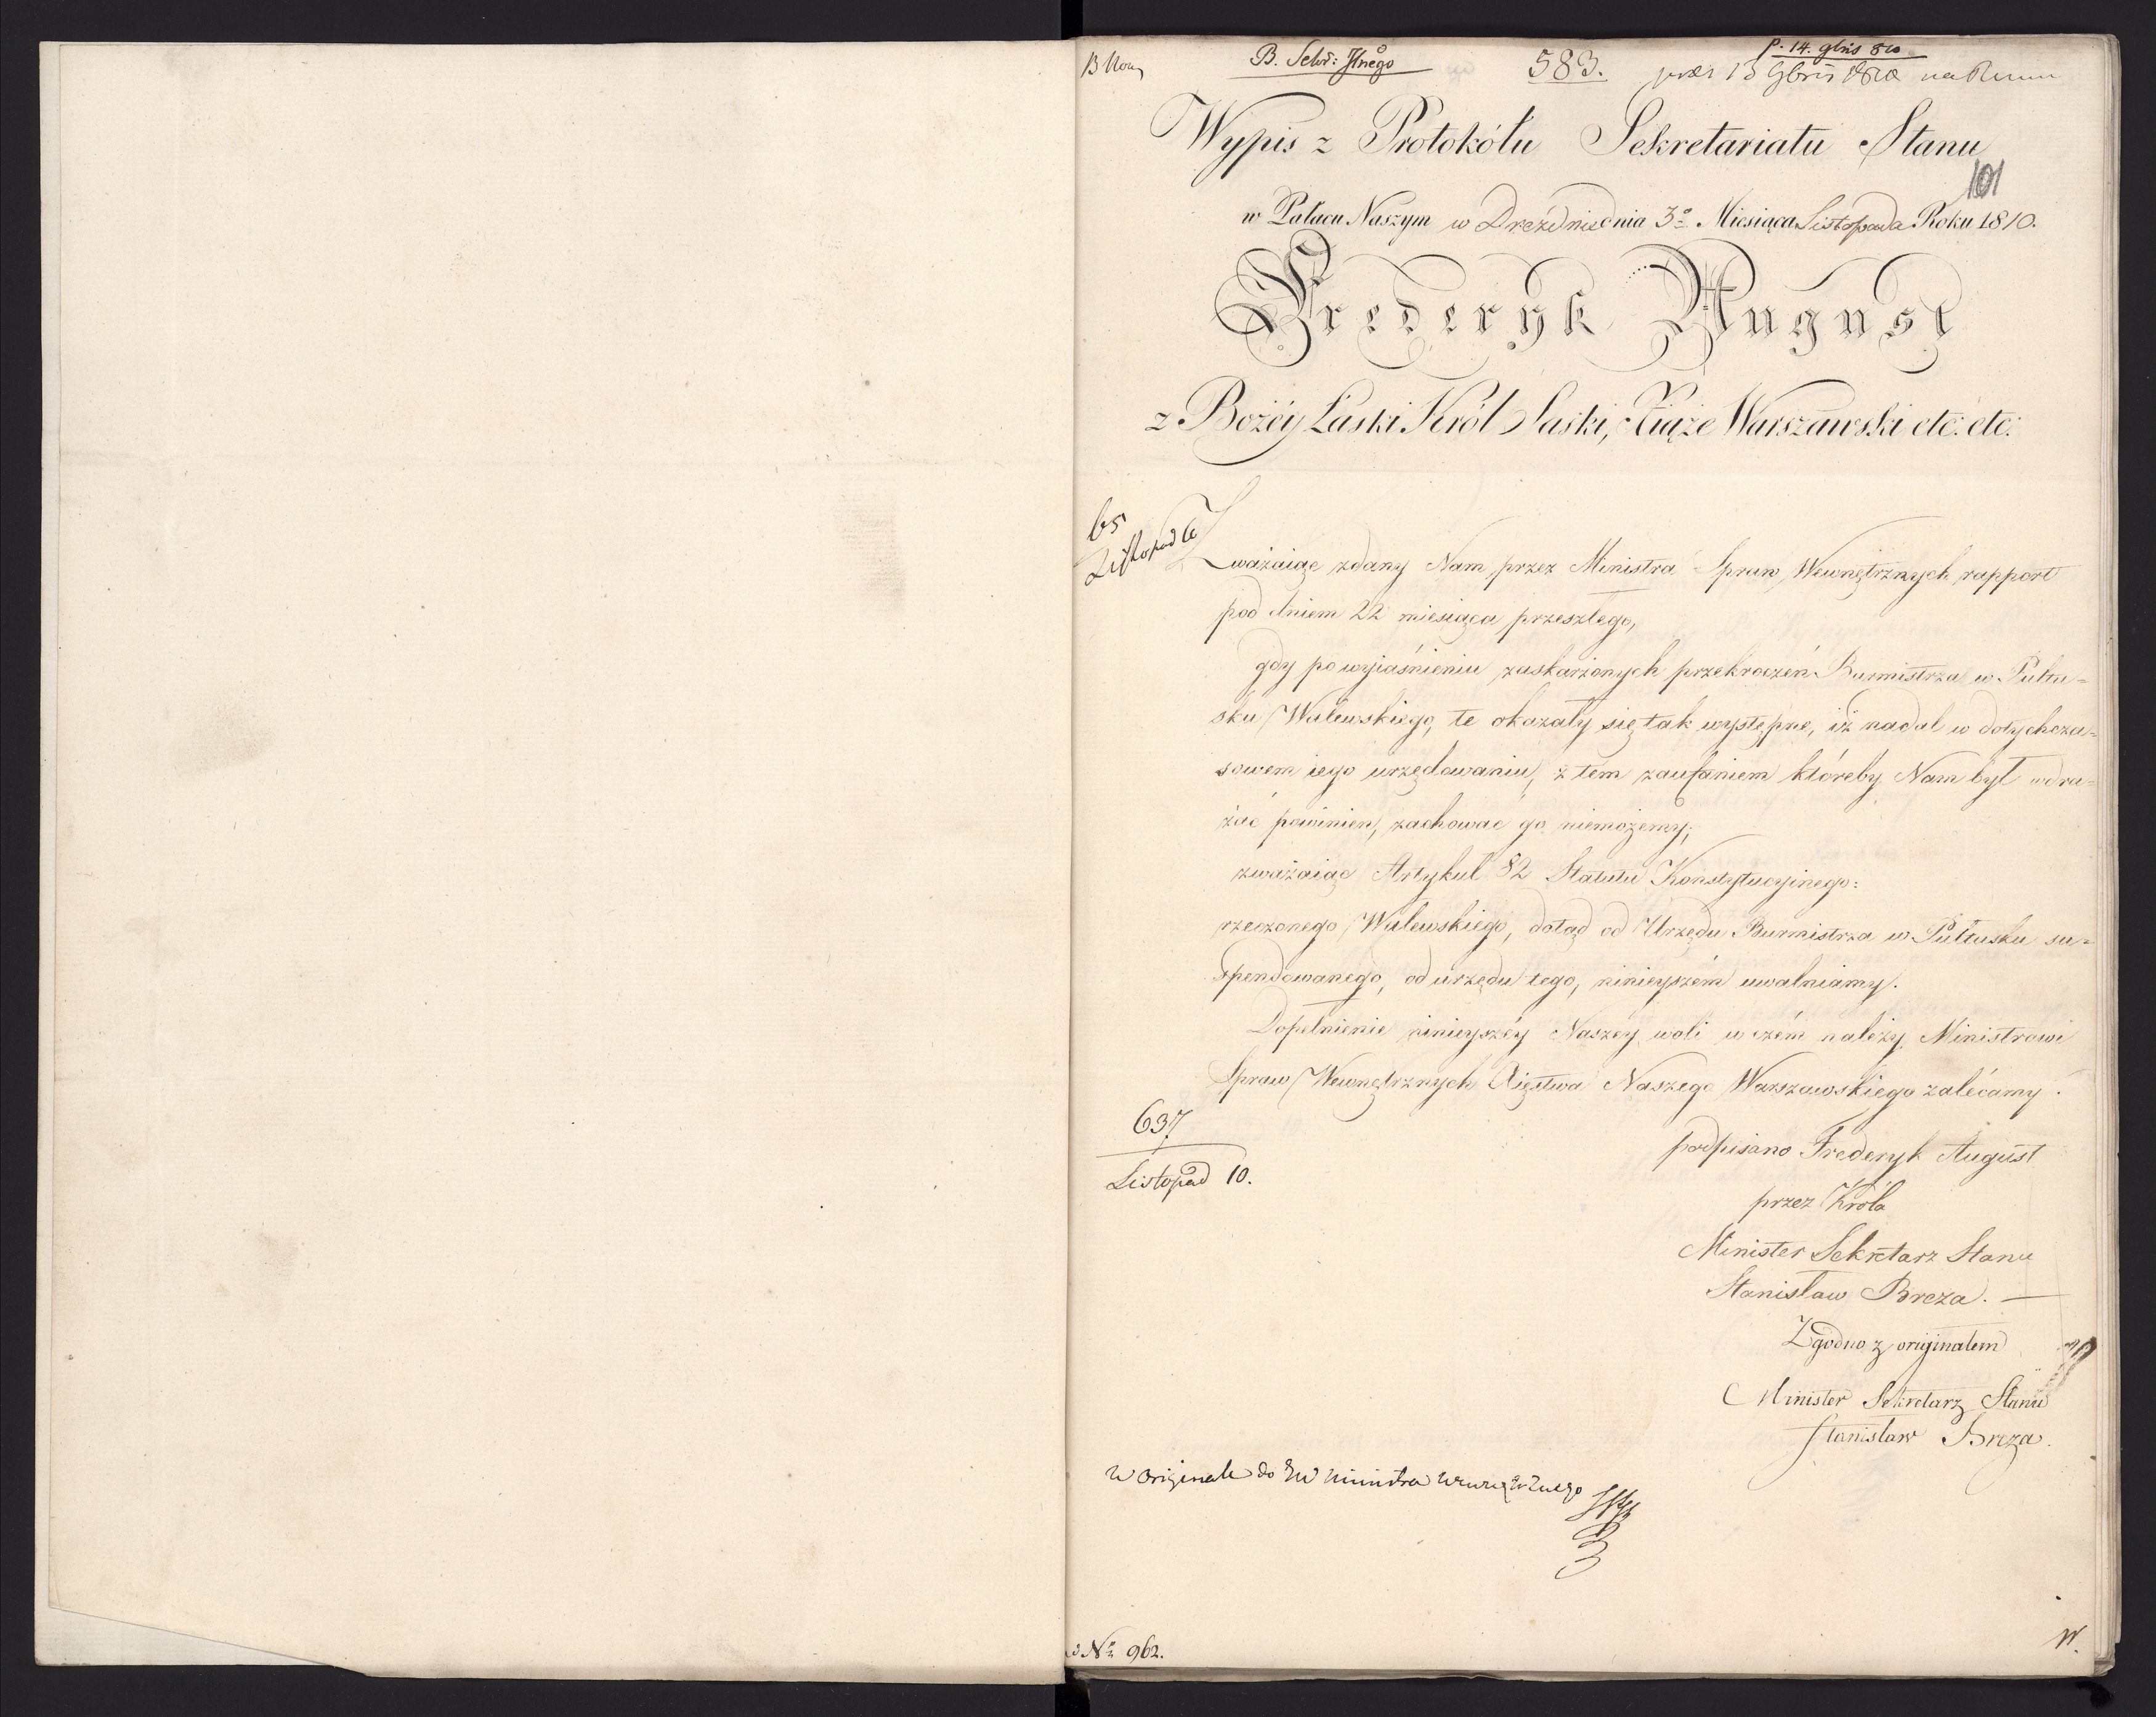 B. Sekr: Jlnego
583.
p. 14. 9bris 810
13 9bris 1810
Wypis z Protokółu Sekretariatu Stanu
101
w Pałacu Naszym w Dreźdnie dnia 3º Miesiąca Listopada Roku 1810.
Fryderyk August
z Bożéy Łaski Król Saski, Xiąże Warszawski etc: etc:
65
Listopad 6
Zważaiąc zdany Nam przez Ministra Spraw Wewnętrznych rapport
pod dniem 22 miesiąca przeszłego,
gdy po wyiaśnieniu zaskarżonych przekroczeń Burmistrza w Pułtu=
sku Walewskiego, te okazały się tak występne, iż nadal w dotychcza=
sowem iego urzędowaniu, z tem zaufaniem któreby Nam był wdra=
żać powinien, zachować go niemożemy;
zważaiąc Artykuł 82 Statutu Konstytucyinego:
rzeczonego Walewskiego, dotąd od Urzędu Burmistrza w Pułtusku su=
spendowanego, od urzędu tego, ninieyszém uwalniamy.
Dopełnienie ninieyszéy Naszey woli w czém należy Ministrowi
Spraw Wewnętrznych Xięstwa Naszego Warszawskiego zalécamy.
637
Listopad 10.
podpisano Frederyk August
przez Króla
Minister Sekretarz Stanu
Stanisław Breza. —
Zgodno z originałem
Minister Sekretarz Stanu
Stanisław Breza.
w originale do JW Ministra Wewnętrznego
Nº 962.
W.